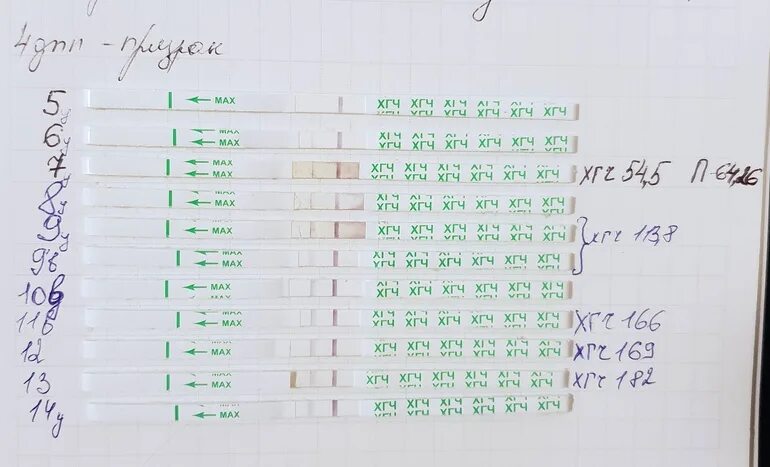 4дпп - призрак
5 ← MAX ХГЧ ХГЧ ХГЧ ХГЧ ХГЧ ХГЧ
6 ← MAX ХГЧ ХГЧ ХГЧ ХГЧ ХГЧ ХГЧ
7 ← MAX ХГЧ ХГЧ ХГЧ ХГЧ ХГЧ ХГЧ ХГЧ 54,5 П-64,26
8 ← MAX ХГЧ ХГЧ ХГЧ ХГЧ ХГЧ ХГЧ
9 ← MAX ХГЧ ХГЧ ХГЧ ХГЧ ХГЧ ХГЧ ХГЧ 113,8
9в ← MAX ХГЧ ХГЧ ХГЧ ХГЧ ХГЧ ХГЧ
10в ← MAX ХГЧ ХГЧ ХГЧ ХГЧ ХГЧ ХГЧ
11в ← MAX ХГЧ ХГЧ ХГЧ ХГЧ ХГЧ ХГЧ ХГЧ 166
12 ← MAX ХГЧ ХГЧ ХГЧ ХГЧ ХГЧ ХГЧ ХГЧ 169
13 ← MAX ХГЧ ХГЧ ХГЧ ХГЧ ХГЧ ХГЧ ХГЧ 182
14у ← MAX ХГЧ ХГЧ ХГЧ ХГЧ ХГЧ ХГЧ